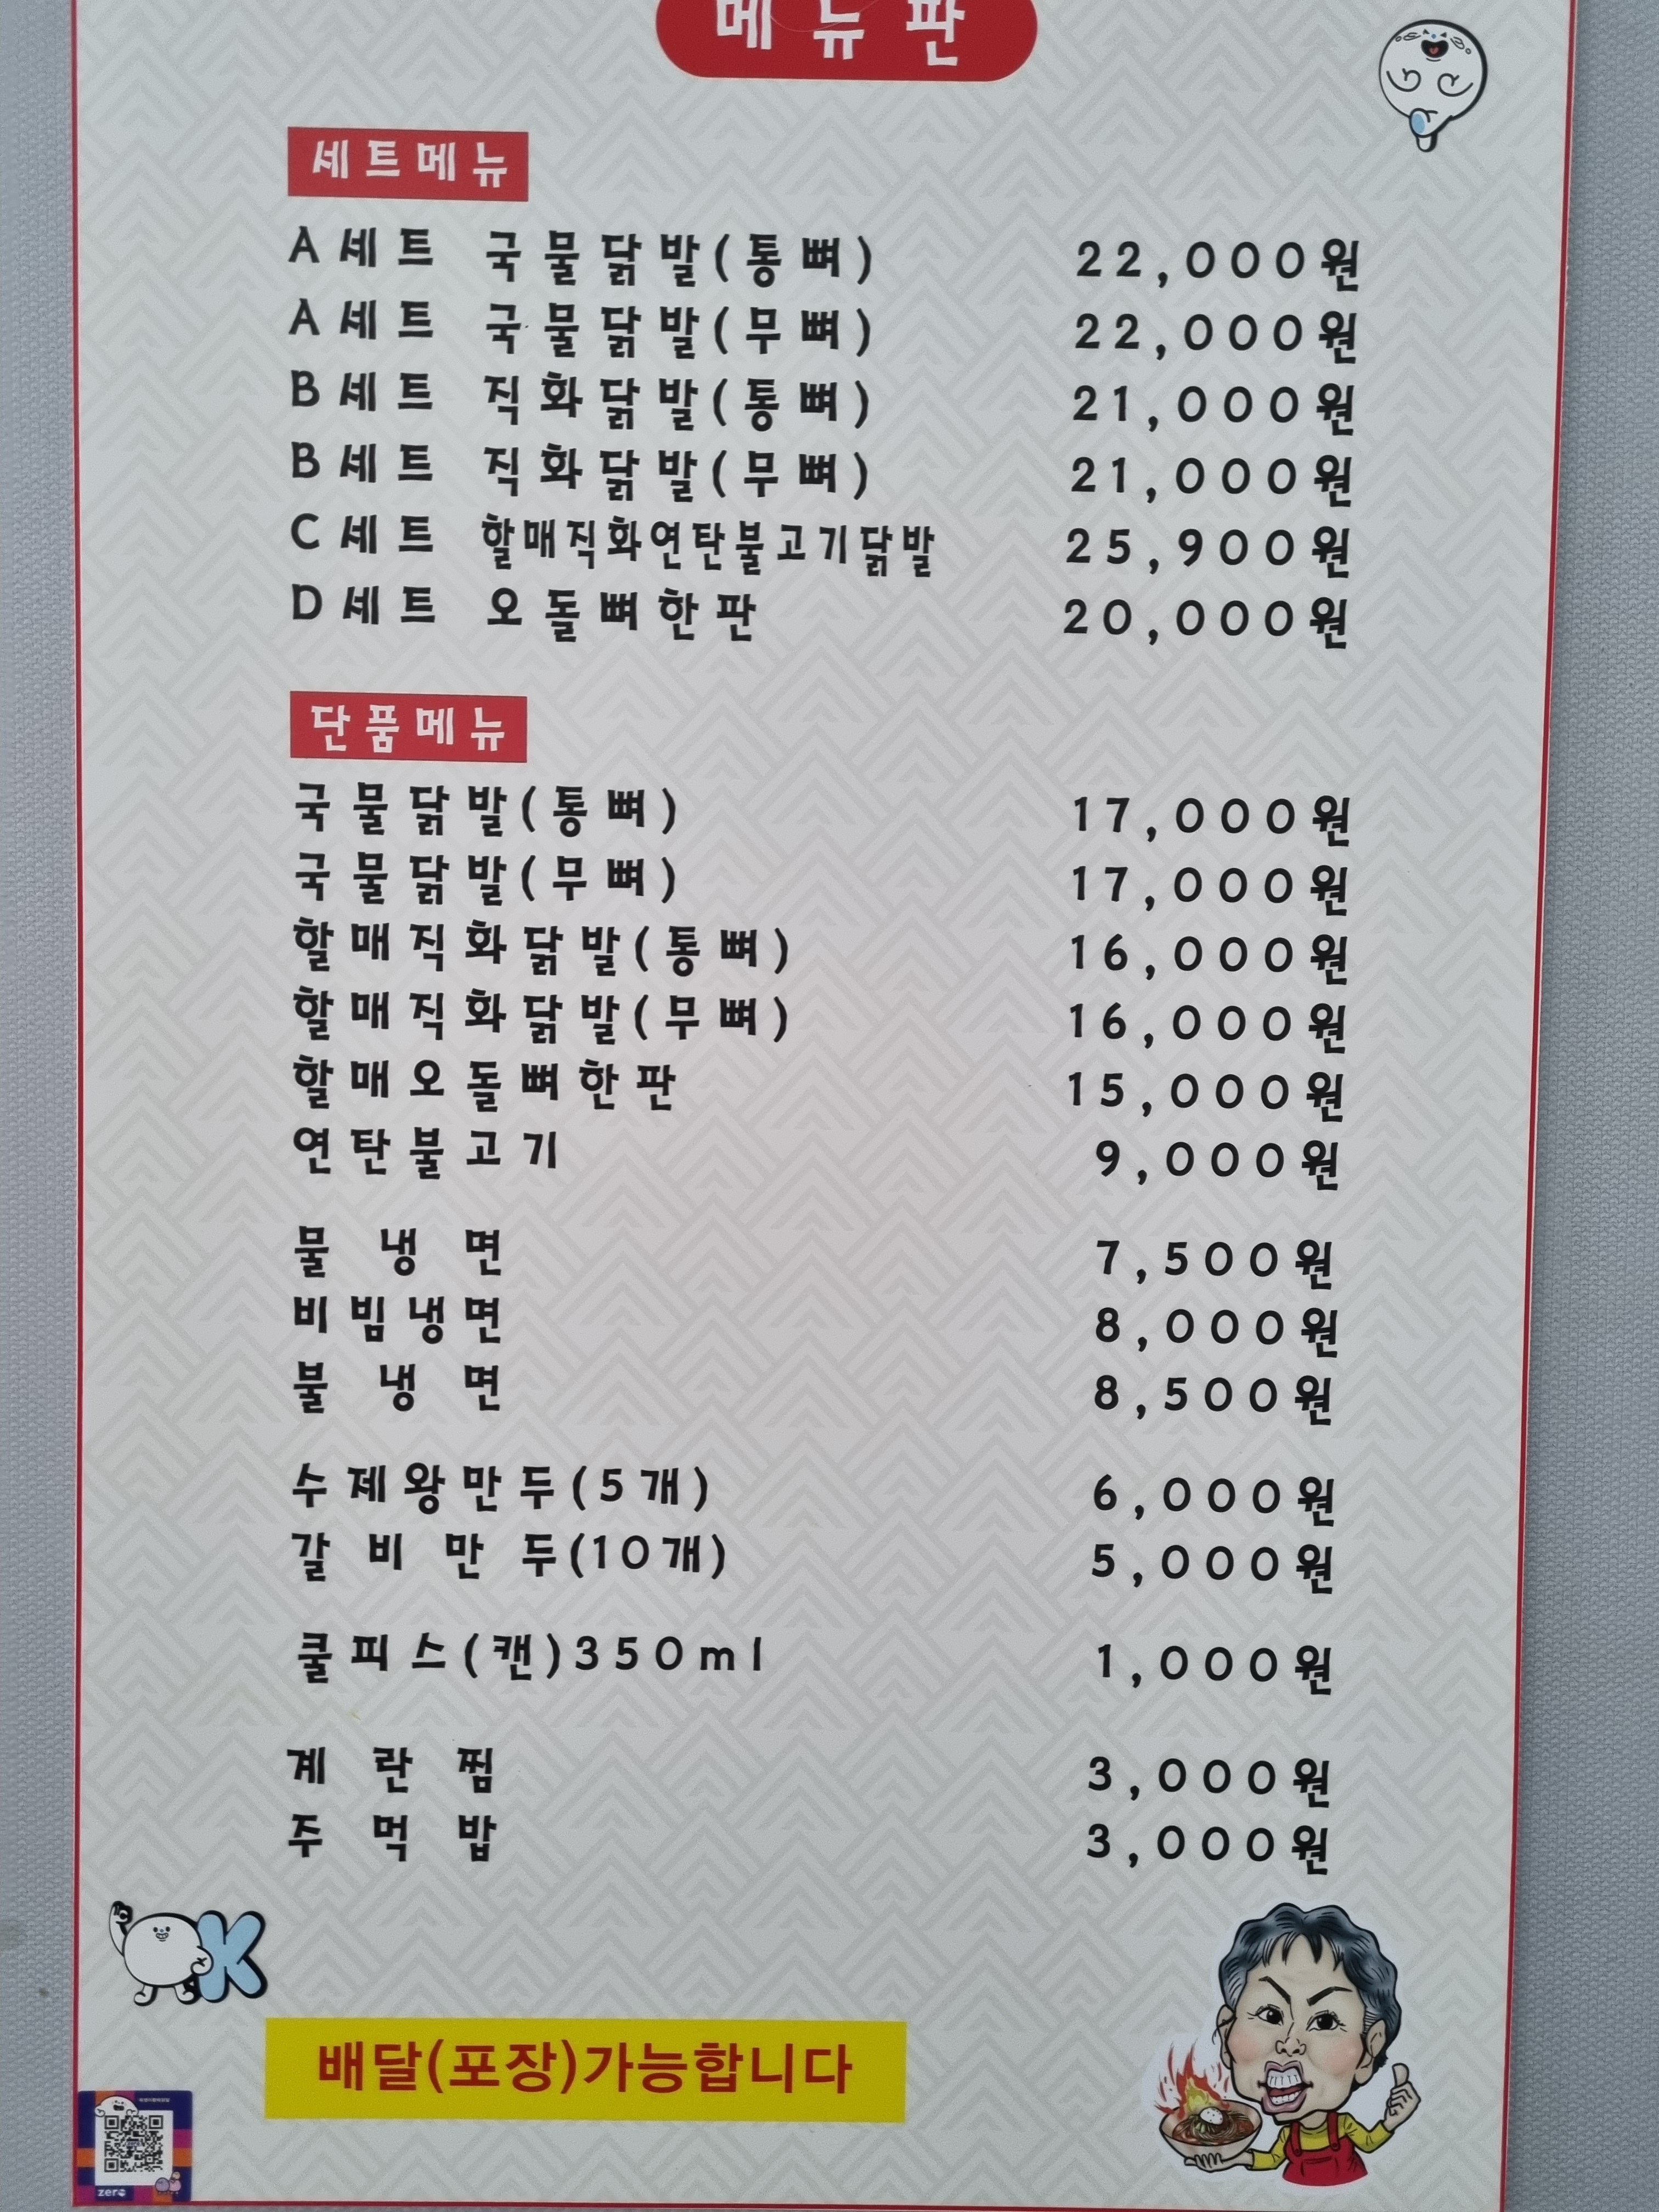 메뉴판
세트메뉴
A세트 국물닭발(통뼈) 22,000원
A세트 국물닭발(무뼈) 22,000원
B세트 직화닭발(통뼈) 21,000원
B세트 직화닭발(무뼈) 21,000원
C세트 할매직화연탄불고기닭발 25,900원
D세트 오돌뼈한판 20,000원
단품메뉴
국물닭발(통뼈) 17,000원
국물닭발(무뼈) 17,000원
할매직화닭발(통뼈) 16,000원
할매직화닭발(무뼈) 16,000원
할매오돌뼈한판 15,000원
연탄불고기 9,000원
물냉면 7,500원
비빔냉면 8,000원
불냉면 8,500원
수제왕만두(5개) 6,000원
갈비만두(10개) 5,000원
쿨피스(캔)350ml 1,000원
계란찜 3,000원
주먹밥 3,000원
OK
배달(포장)가능합니다
zero